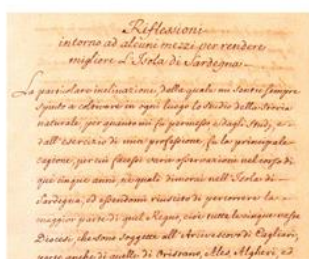 Riflessioni
intorno ad alcuni mezzi per rendere
migliore L'Isola di Sardegna
La particolare inclinazione, dalla quale mi sentii sempre
spinto a coltivare in ogni luogo lo studio della storia
naturale, per quanto mi fu permesso, e dagli Studj, e
dall'esercizio di mia professione, fu la principale
cagione, per cui facessi varie osservazioni nel corso di
que' cinque anni, ne' quali dimorai nell'Isola di
Sardegna, ed essendomi riuscito di percorrere la
maggior parte di quel Regno, cioè tutte le cinque
Diocesi, che sono soggette all'Arcivescovo di Cagliari,
parte anche di quelle di Oristano, Ales, Algheri, ed